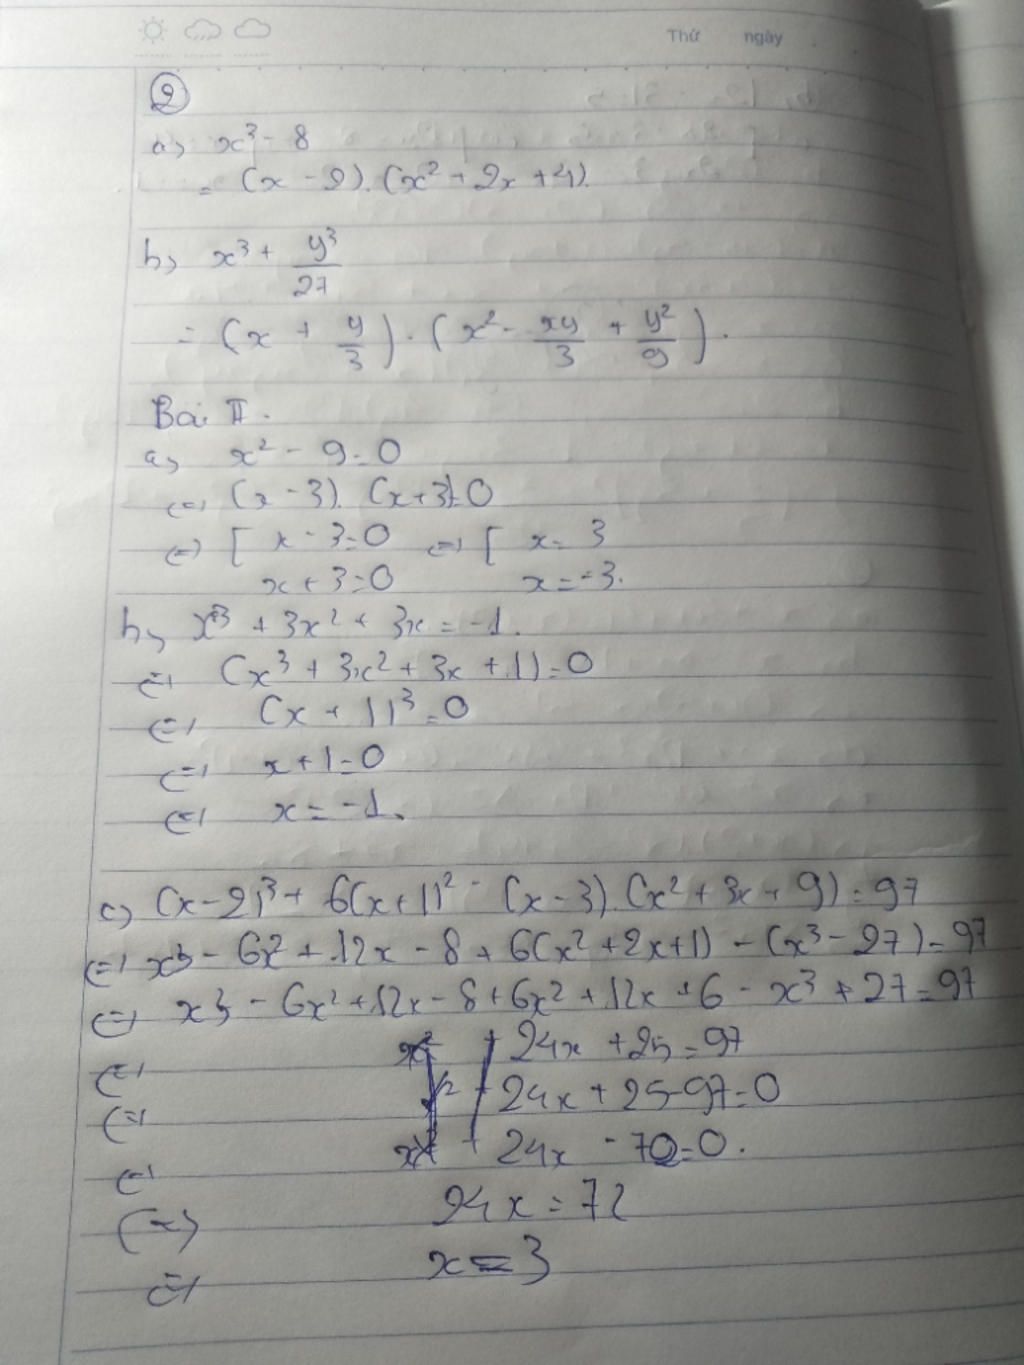 Thứ ngày
②
a) x³ - 8
= (x - 2).(x² + 2x + 4).
b) x³ + y³/27
= (x + y/3) . (x² - xy/3 + y²/9).
Bài II.
a) x² - 9 = 0
<=> (x - 3). (x + 3) = 0
<=> [ x - 3 = 0 <=> [ x = 3
x + 3 = 0 x = -3.
b) x³ + 3x² + 3x = -1.
<=> (x³ + 3x² + 3x + 1) = 0
<=> (x + 1)³ = 0
<=> x + 1 = 0
<=> x = -1.
c) (x - 2)³ + 6(x + 1)² - (x - 3).(x² + 3x + 9) = 97
<=> x³ - 6x² + 12x - 8 + 6(x² + 2x + 1) - (x³ - 27) = 97
<=> x³ - 6x² + 12x - 8 + 6x² + 12x + 6 - x³ + 27 = 97
<=> 24x + 25 = 97
<=> 24x + 25 - 97 = 0
<=> 24x - 72 = 0.
<=> 24x = 72
<=> x = 3